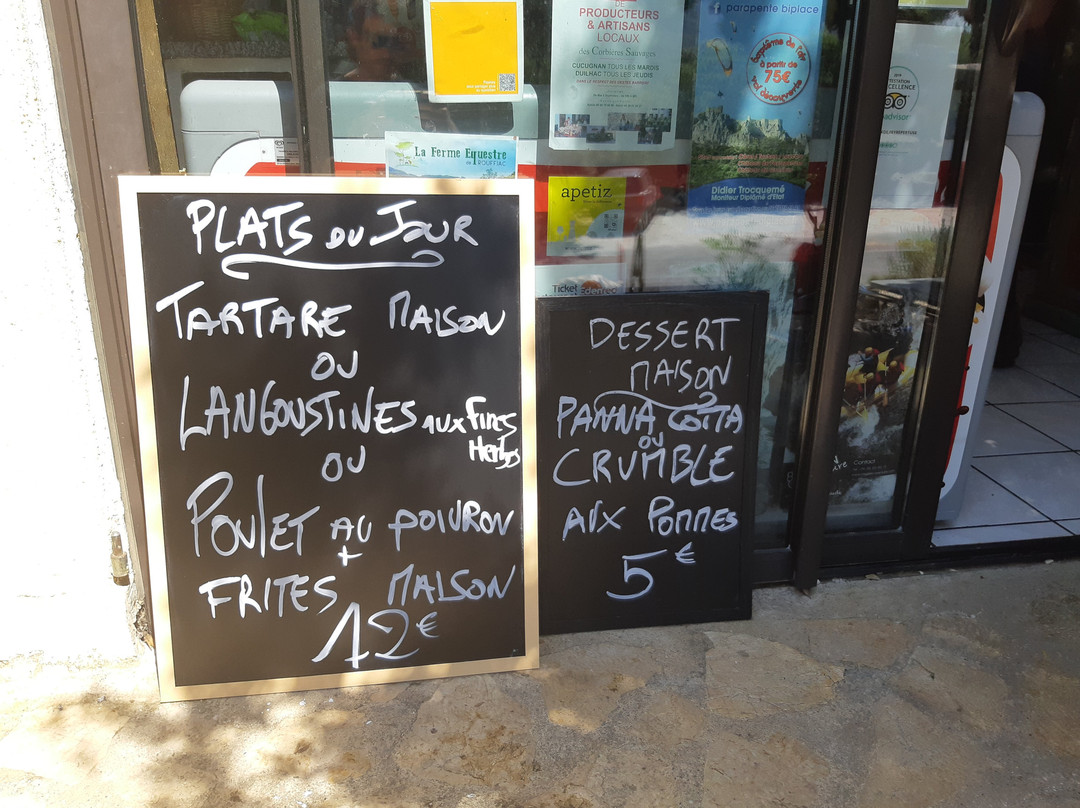 PLATS DU JOUR
TARTARE MAISON
OU
LANGOUSTINES AUX FINES
Herbes
OU
POULET AU POIVRON
+
FRITES MAISON
12€
DESSERT
MAISON
PANNA COTTA
OU
CRUMBLE
AUX POMMES
5€
PRODUCTEURS
& ARTISANS
LOCAUX
des Corbières Sauvages
CUCUGNAN TOUS LES MARDIS
DUILHAC TOUS LES JEUDIS
La Ferme Equestre
de ROUFFIAC
apetiz
Ticket
Edenred
parapente biplace
baptême de l'air
à partir de
75€
vol découverte
Didier Trocquemé
Moniteur Diplômé d'Etat